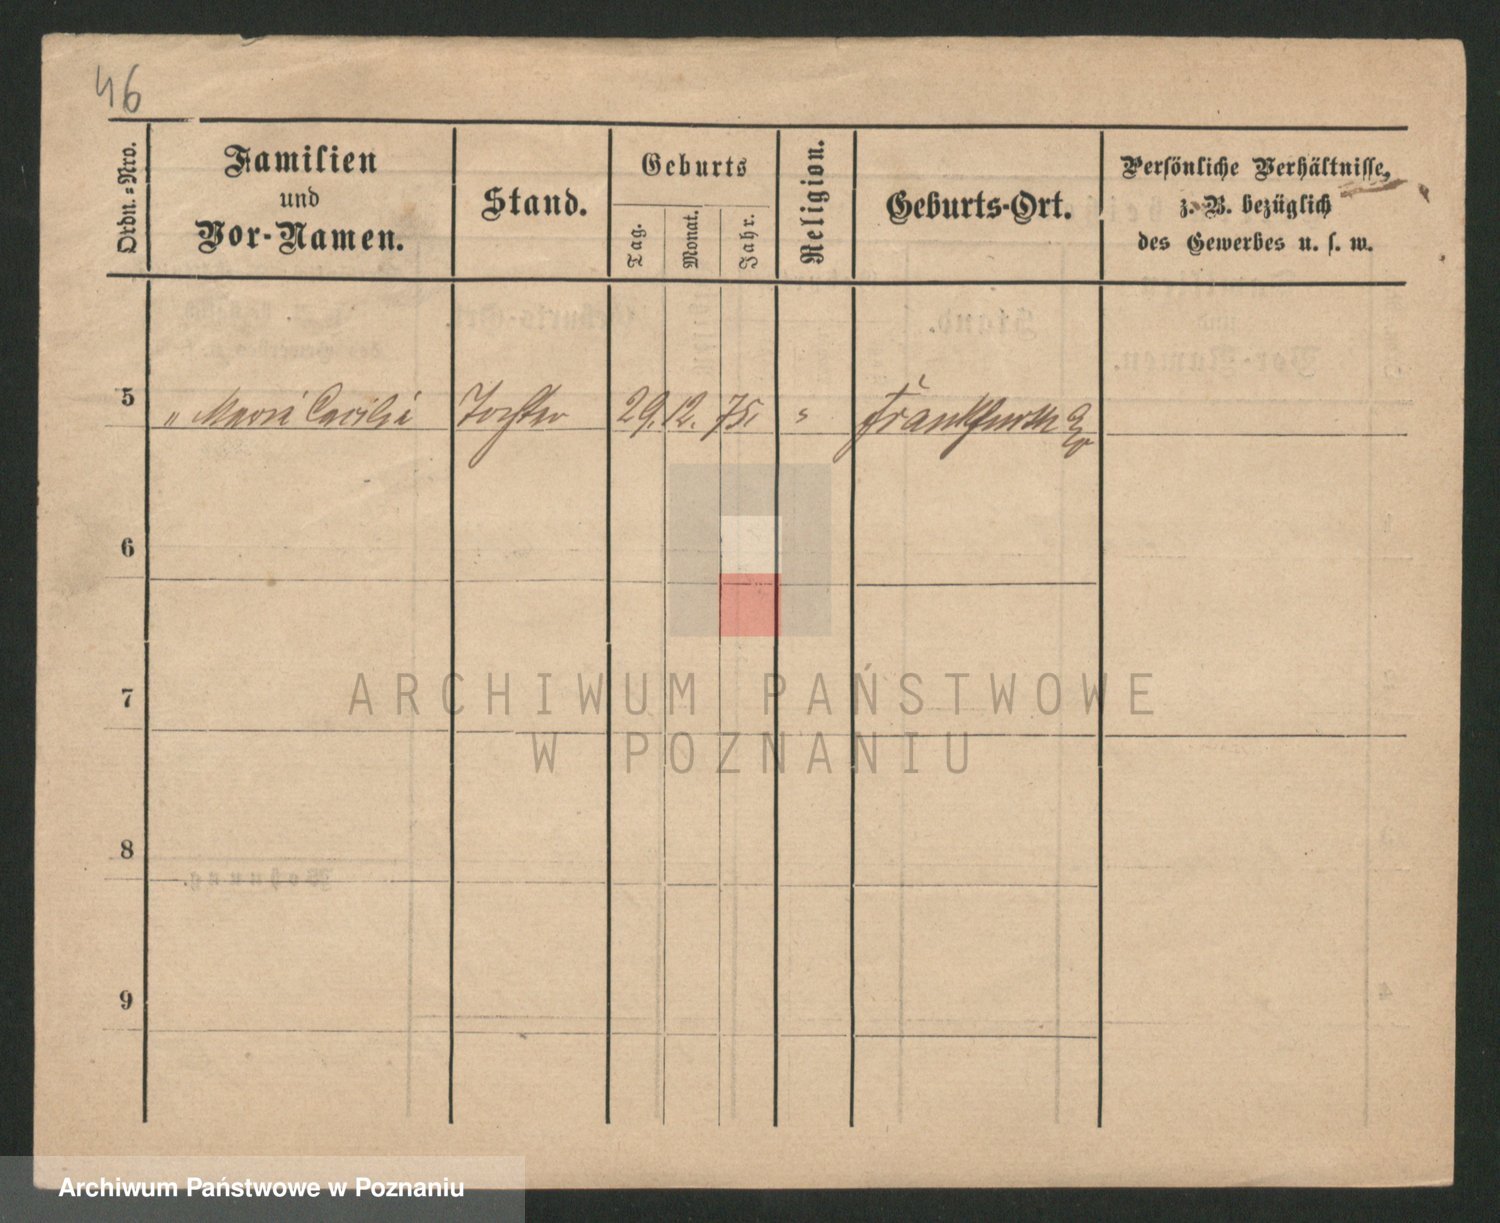 46
Ordn.=Nro.
Familien
und
Vor-Namen.
Stand.
Geburts
Tag.
Monat.
Jahr.
Religion.
Geburts-Ort.
Persönliche Verhältnisse,
z. B. bezüglich
des Gewerbes u. s. w.
5 " Maria Cacilia Tochter 29. 12. 75. " Frankfurth a/O
6
7
8
9
ARCHIWUM PAŃSTWOWE
W POZNANIU
Archiwum Państwowe w Poznaniu